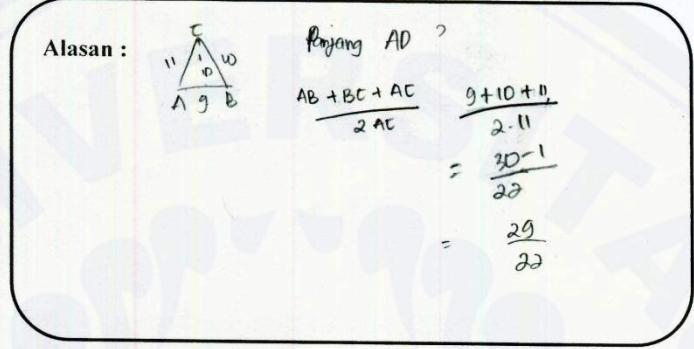 Alasan :
C
11 10
10
A 9 B
Panjang AD ?
AB + BC + AC / 2 AC
9 + 10 + 11 / 2 . 11
= 30 - 1 / 22
= 29 / 22